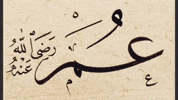 عُمَرُ رَضِيَ اللّٰهُ عَنْهُ